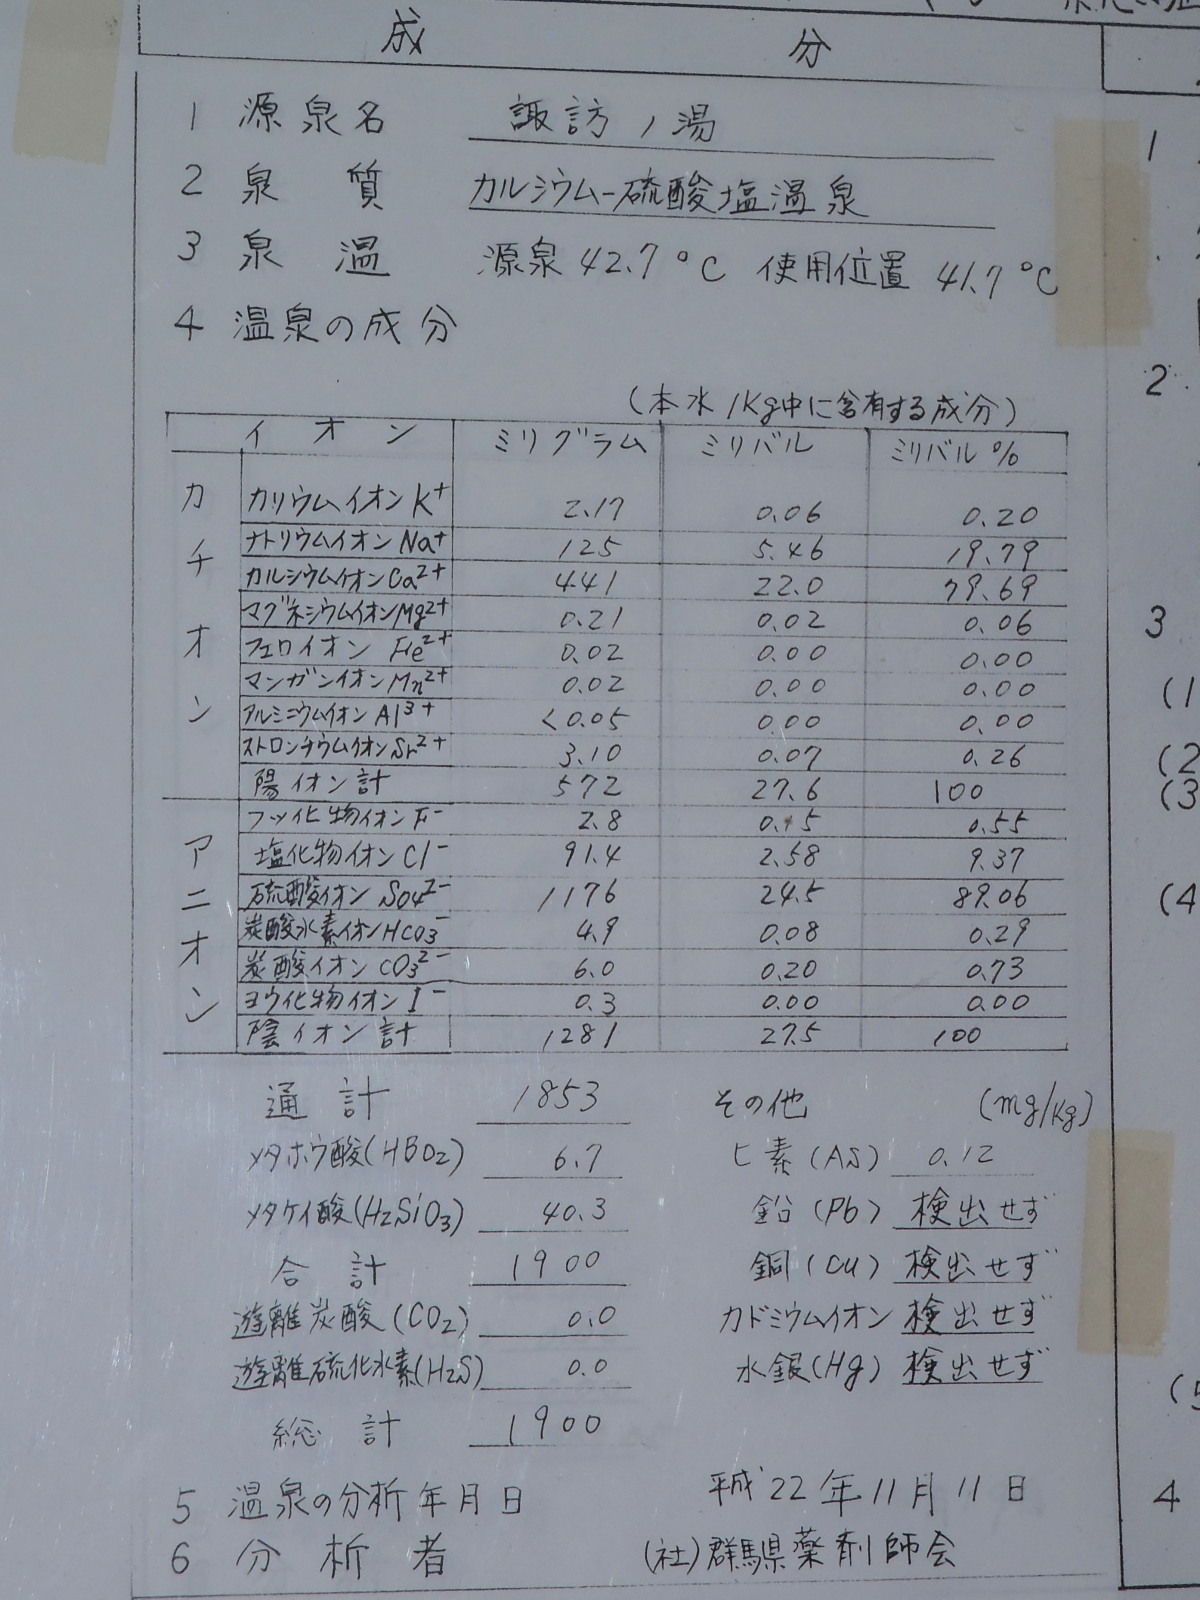 成 分
1 源泉名 諏訪ノ湯
2 泉質 カルシウム-硫酸塩温泉
3 泉温 源泉 42.7°C 使用位置 41.7°C
4 温泉の成分
(本水1Kg中に含有する成分)
イオン ミリグラム ミリバル ミリバル%
カチオン
カリウムイオン K+ 2.17 0.06 0.20
ナトリウムイオン Na+ 125 5.46 19.79
カルシウムイオン Ca2+ 441 22.0 79.69
マグネシウムイオン Mg2+ 0.21 0.02 0.06
フェロイオン Fe2+ 0.02 0.00 0.00
マンガンイオン Mn2+ 0.02 0.00 0.00
アルミニウムイオン Al3+ <0.05 0.00 0.00
ストロンチウムイオン Sr2+ 3.10 0.07 0.26
陽イオン計 572 27.6 100
アニオン
フッ化物イオン F- 2.8 0.15 0.55
塩化物イオン Cl- 91.4 2.58 9.37
硫酸イオン SO42- 1176 24.5 89.06
炭酸水素イオン HCO3- 4.9 0.08 0.29
炭酸イオン CO32- 6.0 0.20 0.73
ヨウ化物イオン I- 0.3 0.00 0.00
陰イオン計 1281 27.5 100
通計 1853 その他 (mg/Kg)
メタホウ酸(HBO2) 6.7 ヒ素(As) 0.12
メタケイ酸(H2SiO3) 40.3 鉛(Pb) 検出せず
合計 1900 銅(Cu) 検出せず
遊離炭酸(CO2) 0.0 カドミウムイオン 検出せず
遊離硫化水素(H2S) 0.0 水銀(Hg) 検出せず
総計 1900
5 温泉の分析年月日 平成22年11月11日
6 分析者 (社)群馬県薬剤師会
1
2
3
(1
(2
(3
(4
(5
4